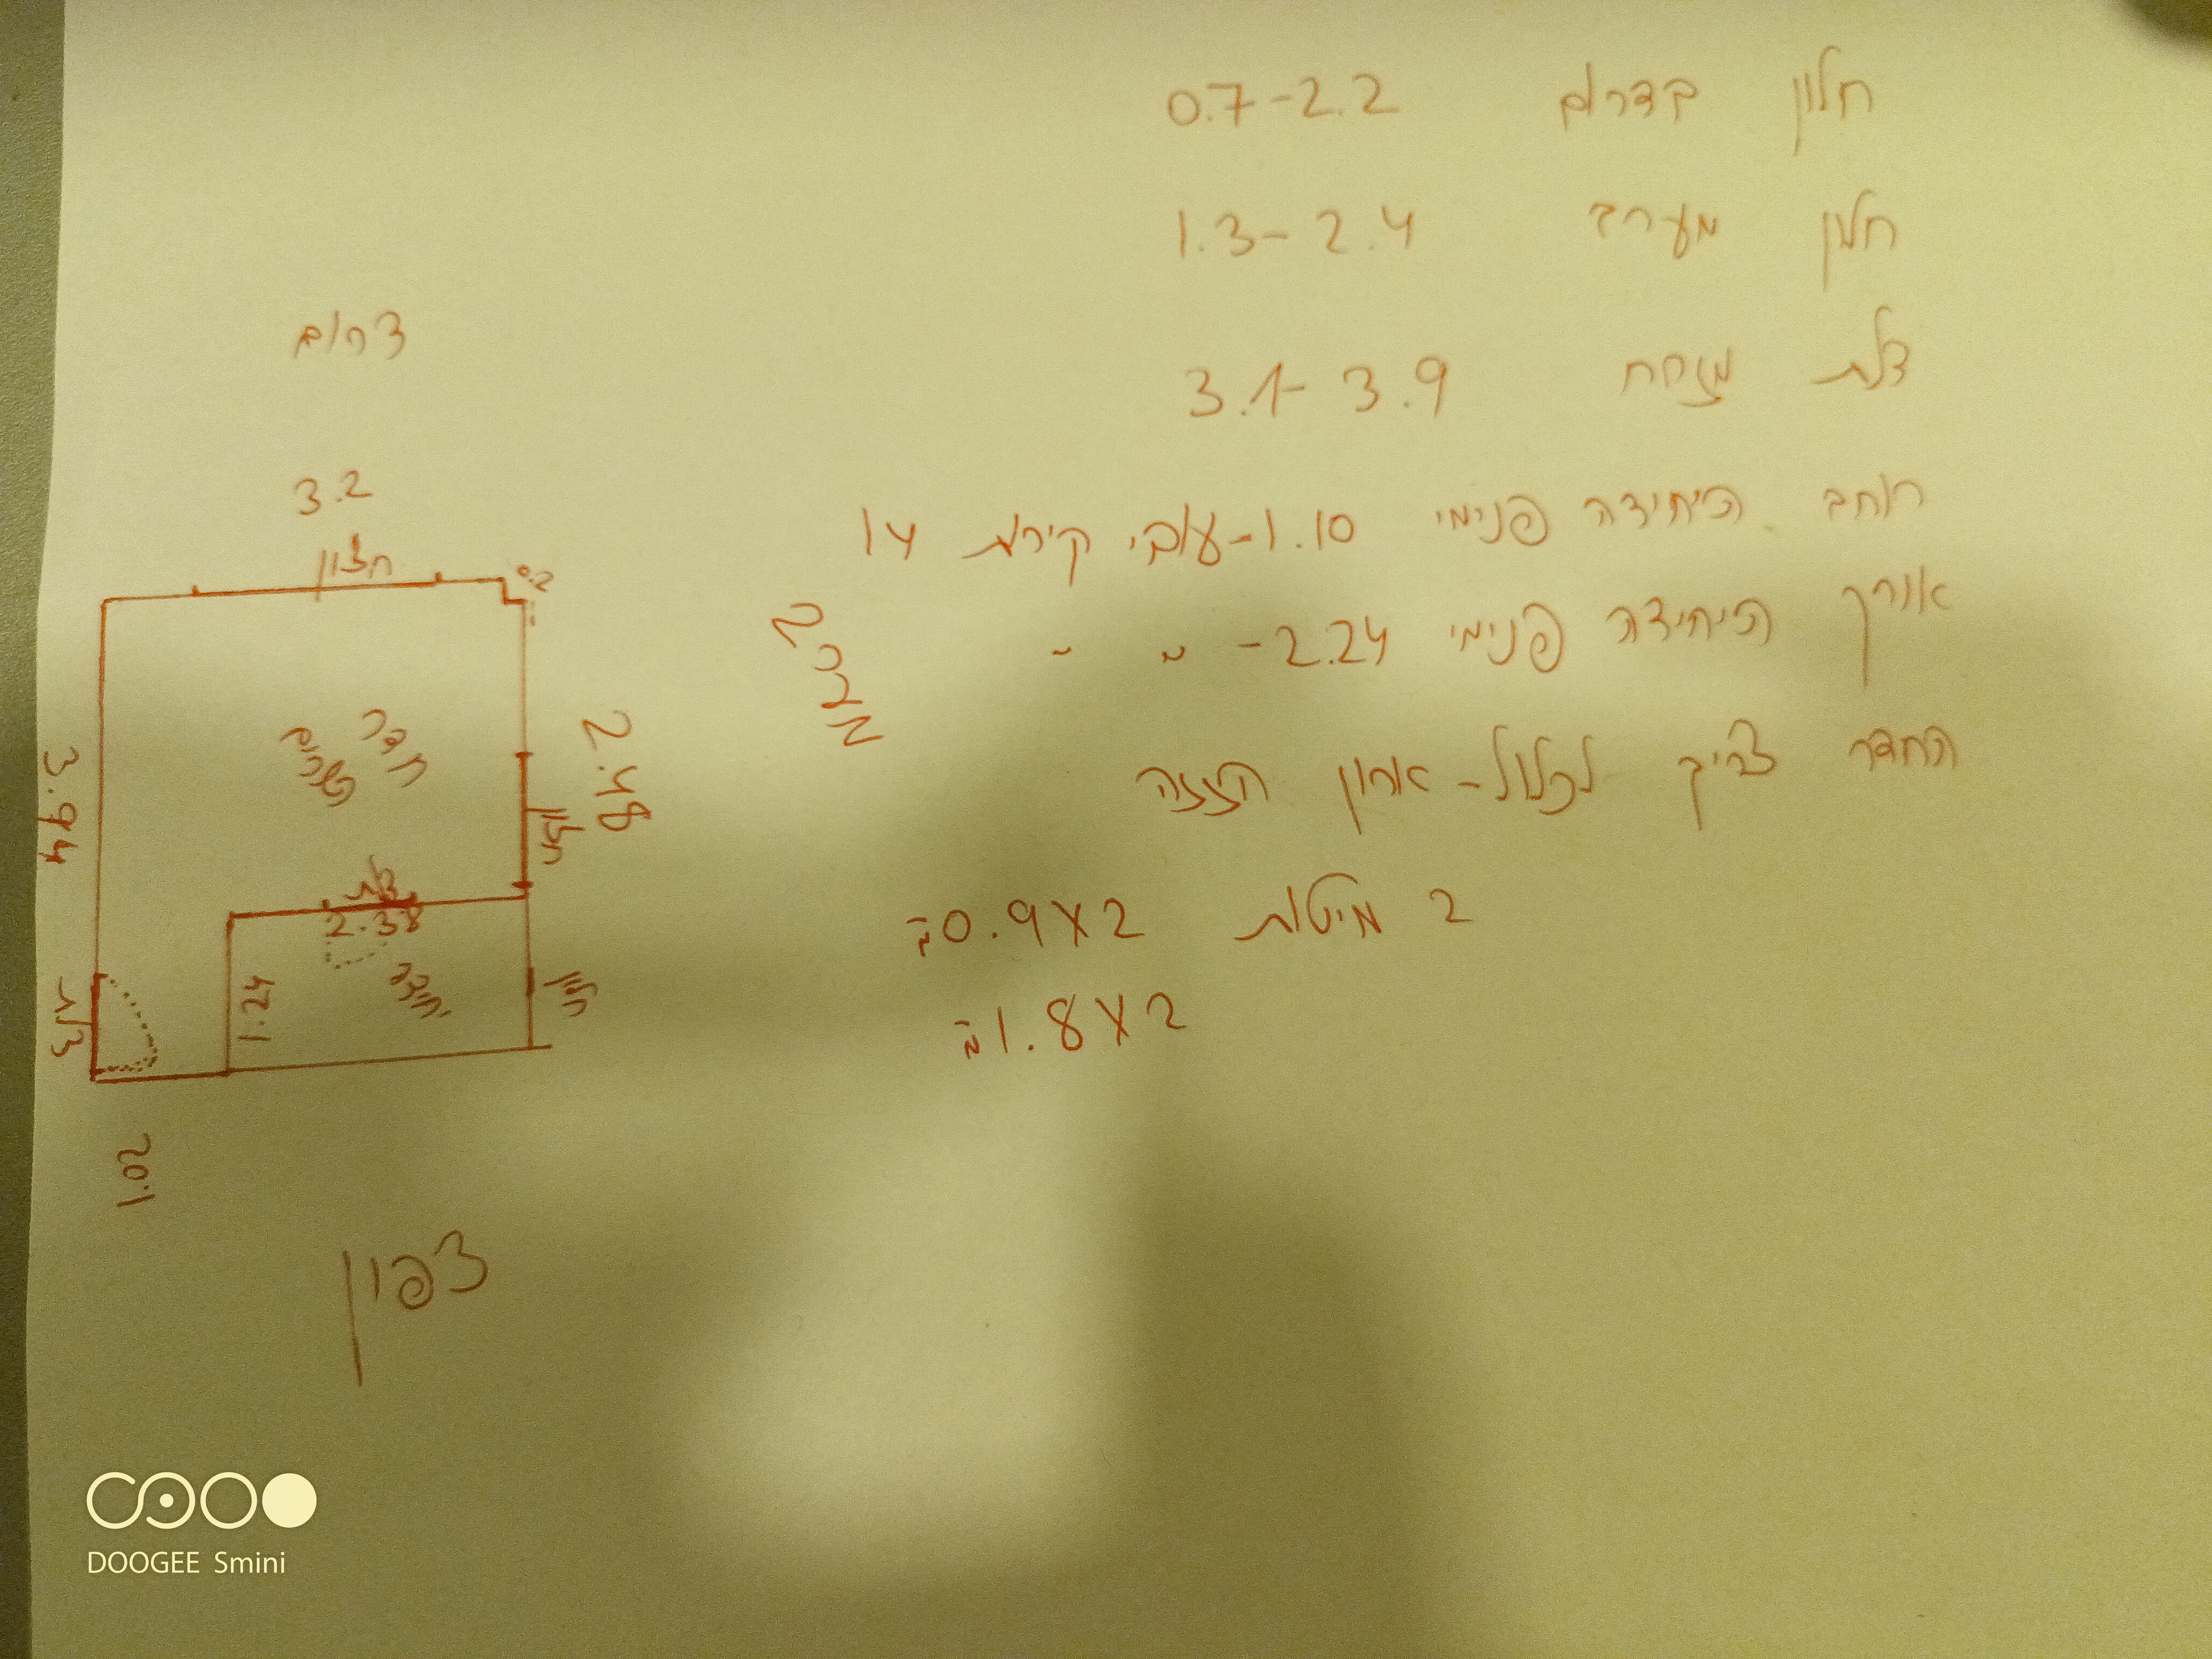 חלון בדרום 0.7-2.2
חלון מערב 1.3-2.4
דלת מזרח 3.1-3.9
רוחב היחידה פנימי 1.10-עובי קירות 14
אורך היחידה פנימי 2.24- " "
החדר צריך לכלול- ארון הזזה
2 מיטות 0.9X2=
1.8X2=
דרום
3.2
חלון
0.2
מערב
חדר
הורים
2.48
חלון
3.94
דלת
2.38
יחידה
1.24
חלון
דלת
1.02
צפון
DOOGEE Smini